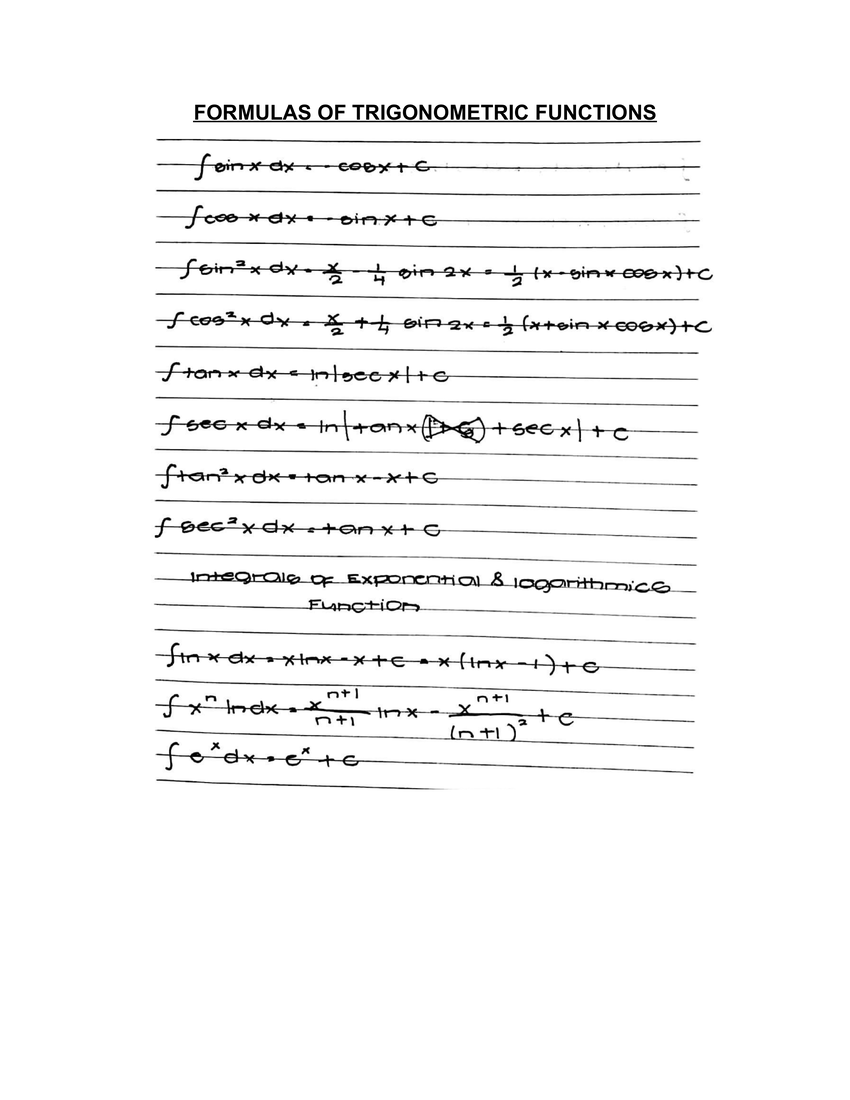 FORMULAS OF TRIGONOMETRIC FUNCTIONS
∫ sin x dx = - cos x + C
∫ cos x dx = - sin x + C
∫ sin² x dx = x/2 - 1/4 sin 2x = 1/2 (x - sin x cos x) + C
∫ cos² x dx = x/2 + 1/4 sin 2x = 1/2 (x + sin x cos x) + C
∫ tan x dx = ln |sec x| + C
∫ sec x dx = ln | tan x + sec x | + C
∫ tan² x dx = tan x - x + C
∫ sec² x dx = tan x + C
Integrals of Exponential & logarithmics
Function
∫ ln x dx = x ln x - x + C = x (ln x - 1) + C
∫ xⁿ ln dx = xⁿ⁺¹/n+1 ln x - xⁿ⁺¹/(n+1)² + C
∫ eˣ dx = eˣ + C